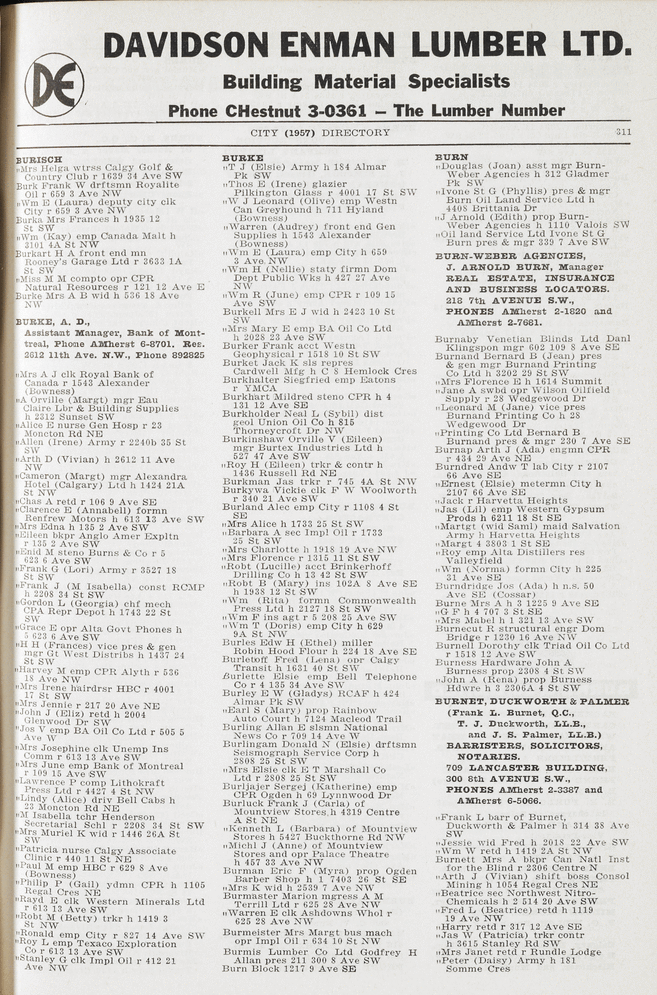 DE
DAVIDSON ENMAN LUMBER LTD.
Building Material Specialists
Phone CHestnut 3-0361 — The Lumber Number
CITY (1957) DIRECTORY 311
BURISCH
„Mrs Helga wtrss Calgy Golf &
Country Club r 1639 34 Ave SW
Burk Frank W drftsmn Royalite
Oil r 659 3 Ave NW
„Wm E (Laura) deputy city clk
City r 659 3 Ave NW
Burka Mrs Frances h 1935 12
St SW
„Wm (Kay) emp Canada Malt h
3101 4A St NW
Burkart H A front end mn
Rooney's Garage Ltd r 3633 1A
St SW
„Miss M M compto opr CPR
Natural Resources r 121 12 Ave E
Burke Mrs A B wid h 536 18 Ave
NW
BURKE, A. D.,
Assistant Manager, Bank of Mont-
treal, Phone AMherst 6-8701, Res.
2612 11th Ave. N.W., Phone 892825
„Mrs A J clk Royal Bank of
Canada r 1543 Alexander
(Bowness)
„A Orville (Margt) mgr Eau
Claire Lbr & Building Supplies
h 2312 Sunset SW
„Alice E nurse Gen Hosp r 23
Moncton Rd NE
„Allen (Irene) Army r 2240b 35 St
SW
„Arth D (Vivian) h 2612 11 Ave
NW
„Cameron (Margt) mgr Alexandra
Hotel (Calgary) Ltd h 1424 21A
St NW
„Chas A retd r 106 9 Ave SE
„Clarence E (Annabell) formn
Renfrew Motors h 613 13 Ave SW
„Mrs Edna h 135 2 Ave SW
„Eileen bkpr Anglo Amer Expltn
r 135 2 Ave SW
„Enid M steno Burns & Co r 5
623 6 Ave SW
„Frank G (Lori) Army r 3527 18
St SW
„Frank J (M Isabella) const RCMP
h 2208 34 St SW
„Gordon L (Georgia) chf mech
CPA Repr Depot h 1743 22 St
SW
„Grace E opr Alta Govt Phones h
5 623 6 Ave SW
„H H (Frances) vice pres & gen
mgr Gt West Distribs h 1437 24
St SW
„Harvey M emp CPR Alyth r 536
18 Ave NW
„Mrs Irene hairdrsr HBC r 4001
17 St SW
„Mrs Jennie r 217 20 Ave NE
„John J (Eliz) retd h 2004
Glenwood Dr SW
„Jos V emp BA Oil Co Ltd r 505 5
Ave W
„Mrs Josephine clk Unemp Ins
Comm r 613 13 Ave SW
„Mrs June emp Bank of Montreal
r 109 15 Ave SW
„Lawrence P comp Lithokraft
Press Ltd r 4427 4 St NW
„Lindy (Alice) driv Bell Cabs h
23 Moncton Rd NE
„M Isabella tchr Henderson
Secretarial Schl r 2208 34 St SW
„Mrs Muriel K wid r 1446 26A St
SW
„Patricia nurse Calgy Associate
Clinic r 440 11 St NE
„Paul M emp HBC r 629 8 Ave
(Bowness)
„Philip P (Gail) ydmn CPR h 1105
Regal Cres NE
„Rayd E clk Western Minerals Ltd
r 613 13 Ave SW
„Robt M (Betty) trkr h 1419 3
St NW
„Ronald emp City r 827 14 Ave SW
„Roy L emp Texaco Exploration
Co r 613 13 Ave SW
„Stanley G clk Impl Oil r 412 21
Ave NW
BURKE
„T J (Elsie) Army h 184 Almar
Pk SW
„Thos E (Irene) glazier
Pilkington Glass r 4001 17 St SW
„W J Leonard (Olive) emp Westn
Can Greyhound h 711 Hyland
(Bowness)
„Warren (Audrey) front end Gen
Supplies h 1543 Alexander
(Bowness)
„Wm E (Laura) emp City h 659
3 Ave NW
„Wm H (Nellie) staty firmn Dom
Dept Public Wks h 427 27 Ave
NW
„Wm R (June) emp CPR r 109 15
Ave SW
Burkell Mrs E J wid h 2423 10 St
SW
„Mrs Mary E emp BA Oil Co Ltd
h 2028 23 Ave SW
Burker Frank acct Westn
Geophysical r 1518 10 St SW
Burket Jack K sls repres
Cardwell Mfg h C 8 Hemlock Cres
Burkhalter Siegfried emp Eatons
r YMCA
Burkhart Mildred steno CPR h 4
131 12 Ave SE
Burkholder Neal L (Sybil) dist
geol Union Oil Co h 815
Thorneycroft Dr NW
Burkinshaw Orville V (Eileen)
mgr Burtex Industries Ltd h
527 47 Ave SW
„Roy H (Eileen) trkr & contr h
1436 Russell Rd NE
Burkman Jas trkr r 745 4A St NW
Burkywa Vickie clk F W Woolworth
r 340 21 Ave SW
Burland Alec emp City r 1108 4 St
SE
„Mrs Alice h 1733 25 St SW
„Barbara A sec Impl Oil r 1733
25 St SW
„Mrs Charlotte h 1918 19 Ave NW
„Mrs Florence r 1315 11 St SW
„Robt (Lucille) acct Brinkerhoff
Drilling Co h 13 42 St SW
„Robt B (Mary) ins 102A 8 Ave SE
h 1938 12 St SW
„Wm (Rita) formn Commonwealth
Press Ltd h 2127 18 St SW
„Wm F ins agt r 5 208 25 Ave SW
„Wm T (Doris) emp City h 629
9A St NW
Burles Edw H (Ethel) miller
Robin Hood Flour h 224 18 Ave SE
Burletoff Fred (Lena) opr Calgy
Transit h 1631 40 St SW
Burlette Elsie emp Bell Telephone
Co r 4 135 34 Ave SW
Burley E W (Gladys) RCAF h 424
Almar Pk SW
„Earl S (Mary) prop Rainbow
Auto Court h 7124 Macleod Trail
Burling Allan E slsmn National
News Co r 709 14 Ave W
Burlingam Donald N (Elsie) drftsmn
Seismograph Service Corp h
2808 25 St SW
„Mrs Elsie clk E T Marshall Co
Ltd r 2808 25 St SW
Burljajer Sergej (Katherine) emp
CPR Ogden h 69 Lynnwood Dr
Burluck Frank J (Carla) of
Mountview Stores h 4319 Centre
A St NE
„Kenneth L (Barbara) of Mountview
Stores h 5427 Buckthorne Rd NW
„Michl J (Anne) of Mountview
Stores and opr Palace Theatre
h 457 33 Ave NW
Burman Eric F (Myra) prop Ogden
Barber Shop h 1 7403 26 St SE
„Mrs K wid h 2539 7 Ave NW
Burmaster Marion mgress A M
Terrill Ltd r 625 28 Ave NW
„Warren E clk Ashdowns Whol r
625 28 Ave NW
Burmeister Mrs Margt bus mach
opr Impl Oil r 634 10 St NW
Burmis Lumber Co Ltd Godfrey H
Allan pres 211 300 8 Ave SW
Burn Block 1217 9 Ave SE
BURN
„Douglas (Joan) asst mgr Burn-
Weber Agencies h 312 Gladmer
Pk SW
„Ivone St G (Phyllis) pres & mgr
Burn Oil Land Service Ltd h
4408 Brittania Dr
„J Arnold (Edith) prop Burn-
Weber Agencies h 1110 Valois SW
„Oil land Service Ltd Ivone St G
Burn pres & mgr 339 7 Ave SW
BURN-WEBER AGENCIES,
J. ARNOLD BURN, Manager
REAL ESTATE, INSURANCE
AND BUSINESS LOCATORS.
218 7th AVENUE S.W.,
PHONES AMherst 2-1820 and
AMherst 2-7681.
Burnaby Venetian Blinds Ltd Danl
Klingspon mgr 602 109 8 Ave SE
Burnand Bernard B (Jean) pres
& gen mgr Burnand Printing
Co Ltd h 3202 29 St SW
„Mrs Florence E h 1614 Summit
„Jane A swbd opr Wilson Oilfield
Supply r 28 Wedgewood Dr
„Leonard M (Jane) vice pres
Burnand Printing Co h 28
Wedgewood Dr
„Printing Co Ltd Bernard B
Burnand pres & mgr 230 7 Ave SE
Burnap Arth J (Ada) engmn CPR
r 434 29 Ave NE
Burndred Andw T lab City r 2107
66 Ave SE
„Ernest (Elsie) metermn City h
2107 66 Ave SE
„Jack r Harvetta Heights
„Jas (Lil) emp Western Gypsum
Prods h 6211 18 St SE
„Martgt (wid Saml) maid Salvation
Army h Harvetta Heights
„Margt 4 3803 1 St SE
„Roy emp Alta Distillers res
Valleyfield
„Wm (Norma) formn City h 225
31 Ave SE
Burndridge Jos (Ada) h n.s. 50
Ave SE (Cossar)
Burne Mrs A h 3 1225 9 Ave SE
„G F h 4 707 3 St SE
„Mrs Mabel h 1 321 13 Ave SW
Burnecut R structural engr Dom
Bridge r 1230 16 Ave NW
Burnell Dorothy clk Triad Oil Co Ltd
r 1518 12 Ave SW
Burness Hardware John A
Burness prop 2308 4 St SW
„John A (Rena) prop Burness
Hdwre h 3 2306A 4 St SW
BURNET, DUCKWORTH & PALMER
(Frank L. Burnet, Q.C.,
T. J. Duckworth, LL.B.,
and J. S. Palmer, LL.B.)
BARRISTERS, SOLICITORS,
NOTARIES.
709 LANCASTER BUILDING,
300 8th AVENUE S.W.,
PHONES AMherst 2-3387 and
AMherst 6-5066.
„Frank L barr of Burnet,
Duckworth & Palmer h 314 38 Ave
SW
„Jessie wid Fred h 2018 22 Ave SW
„Wm W retd h 1419 2A St NW
Burnett Mrs A bkpr Can Natl Inst
for the Blind r 2306 Centre N
„Arth J (Vivian) shift boss Consol
Mining h 1054 Regal Cres NE
„Beatrice sec Northwest Nitro-
Chemicals h 2 514 20 Ave SW
„Fred L (Beatrice) retd h 1119
19 Ave NW
„Harry retd r 317 12 Ave SE
„Jas W (Patricia) trkr contr
h 3615 Stanley Rd SW
„Mrs Janet retd r Rundle Lodge
„Peter (Daisy) Army h 181
Somme Cres